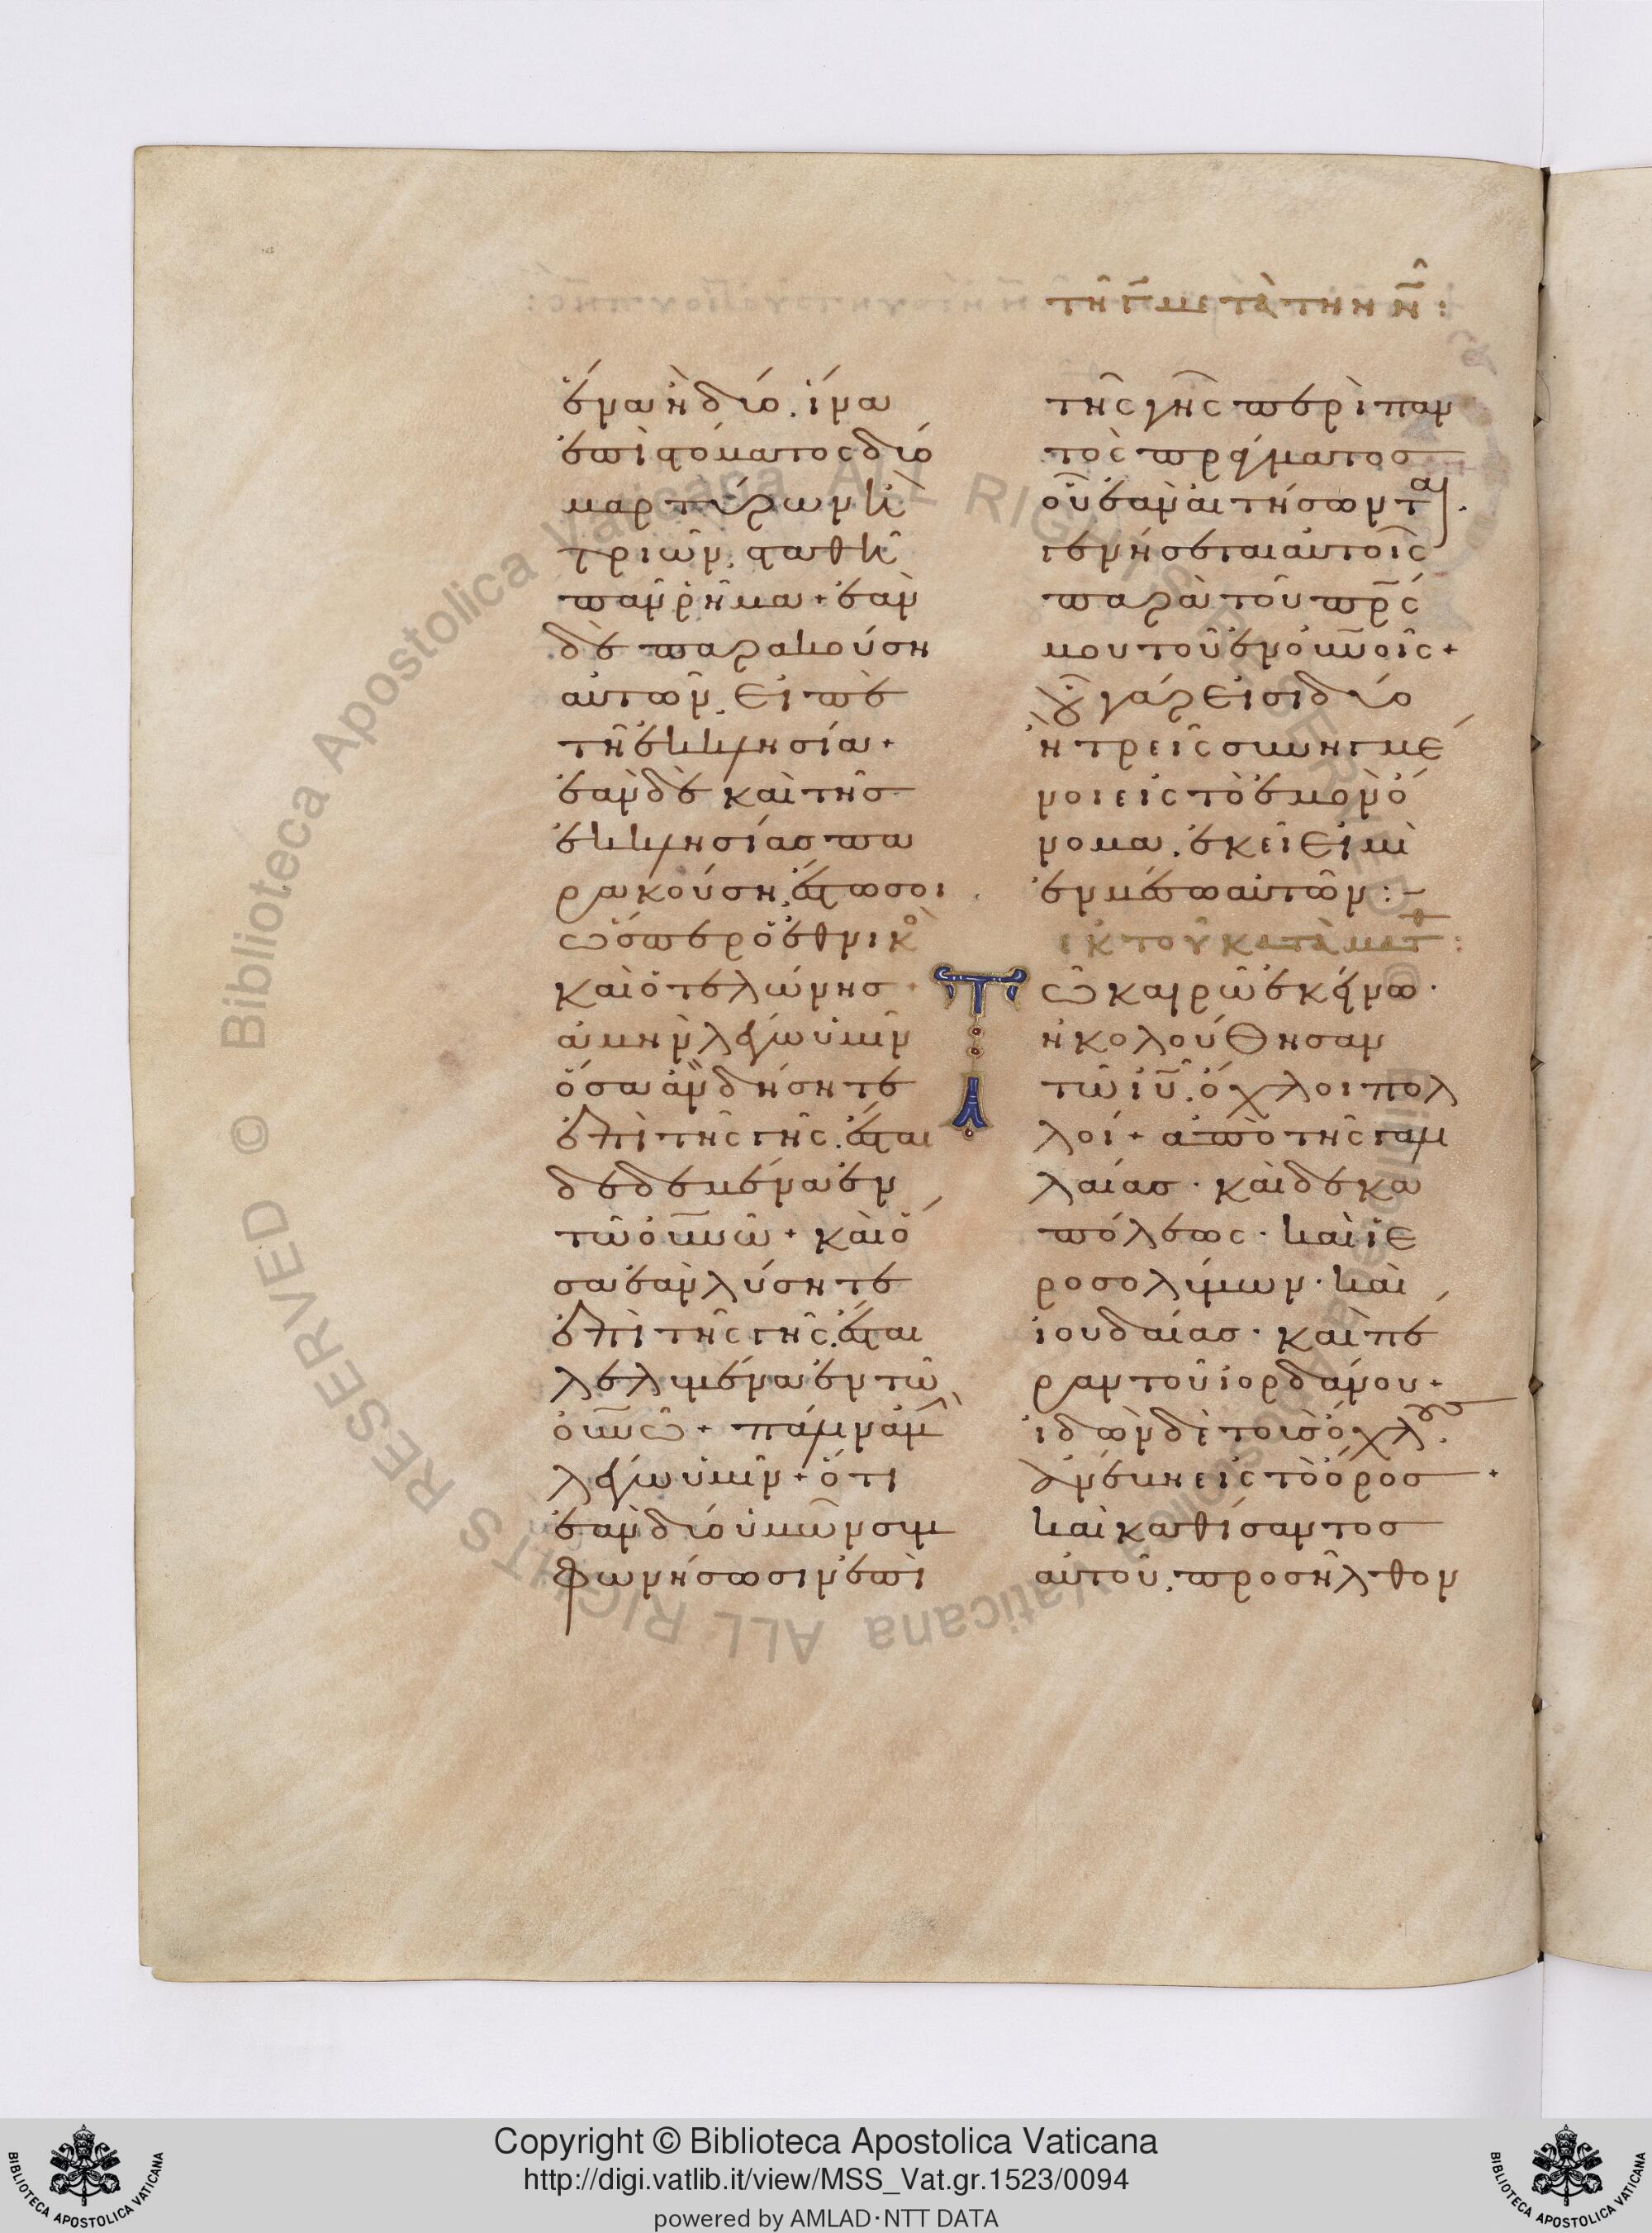 τῆ γ̅ μετὰ τὴν Ν̅:
ἕνα ἢ δύο. ἵνα
ἐπὶ στόματος δύο
μαρτύρων ἢ
τριῶν, σταθῆ
πᾶν ῥῆμα + ἐὰν
δὲ παρακούση
αὐτῶν, εἰπὲ
τῆ ἐκκλησία +
ἐὰν δὲ καὶ τῆσ
ἐκκλησίασ πα
ρακούση, ἔστω σοι
ὥσπερ ὁ ἐθνικὸ
καὶ ὁ τελώνησ
ἀμὴν λέγω ὑμῖν
ὅσα ἂν δήσητε
ἐπὶ τῆς γῆς. ἔσται
δεδεμένα ἐν
τῶ οὐ̅νῶ + καὶ ὅ
σα ἐὰν λύσητε
ἐπὶ τῆς γῆς. ἔσται
λελυμένα ἐν τῶ
οὐ̅νῶ + πάλιν ἀμὴ
λέγω ὑμῖν + ὅτι
ἐὰν δύο ὑμῶν συμ
φωνήσωσιν ἐπὶ
τῆς γῆς περὶ παν
τὸς πράγματοσ
οὗ ἐὰν αἰτήσωνται.
γενήσεται αὐτοῖς
παρὰ τοῦ πρ̅ς
μου τοῦ ἐν οὐ̅νοῖς +
οὗ γάρ εἰσι δύο
ἢ τρεῖς συνηγμέ
νοι εἰς τὸ ἐμὸν ὄ
νομα. ἐκεῖ εἰμὶ
ἐν μέσω αὐτῶν :-
ἐκ τοῦ κατὰ ματθ :
Τῶ καιρῶ ἐκείνω.
ἠκολούθησαν
τῶ ἰ̅υ. ὄχλοι πολ
λοί + ἀπὸ τῆς γαλι
λαίασ. καὶ δεκα
πόλεως. καὶ ἱε
ροσολύμων. καὶ
ἰουδαίασ. καὶ πέ
ραν τοῦ ἰορδάνου +
ἰδὼν δὲ τοὺσ ὄχλους.
ἀνέβη εἰς τὸ ὄροσ +
καὶ καθίσαντοσ
αὐτοῦ, προσῆλθον
Copyright © Biblioteca Apostolica Vaticana
http://digi.vatlib.it/view/MSS_Vat.gr.1523/0094
powered by AMLAD·NTT DATA
BIBLIOTECA APOSTOLICA VATICANA
BIBLIOTECA APOSTOLICA VATICANA
© Biblioteca Apostolica Vaticana ALL RIGHTS RESERVED
© Biblioteca Apostolica Vaticana ALL RIGHTS RESERVED